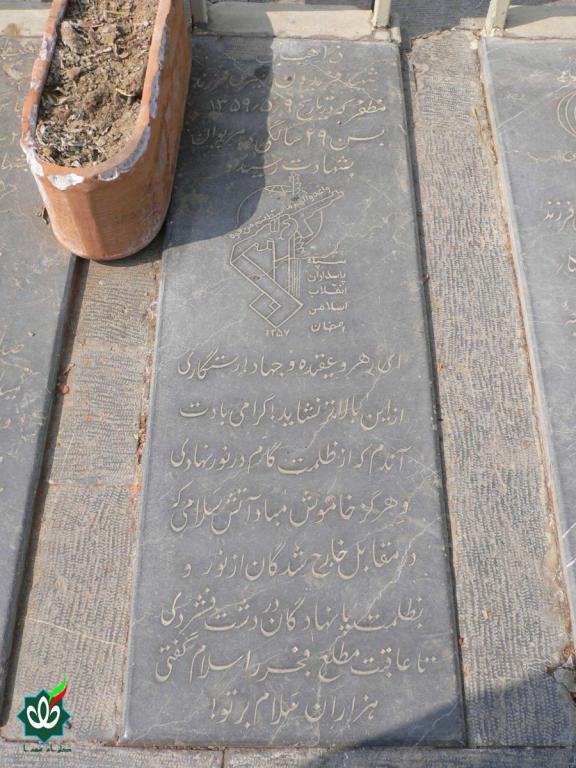 شهید فریدون فرزند
مظفر که در تاریخ ۱۳۵۹/۵/۹
بسن ۴۹ سالگی در مریوان
بشهادت رسید
سپاه
پاسداران
انقلاب
اسلامی
۱۳۵۷
ای رهرو عقیده و جهاد! رستگاری
از این بالاتر نشاید! گرامی بادت
آندم که از ظلمت گام در نور نهادی
و هرگز خاموش مباد آتش سلامی که
در مقابل خارج شدگان از نور و
بظلمت پا نهادگان در دشت فشردی
تا عاقبت مطلع فجر را سلام گفتی
هزاران سلام بر تو!